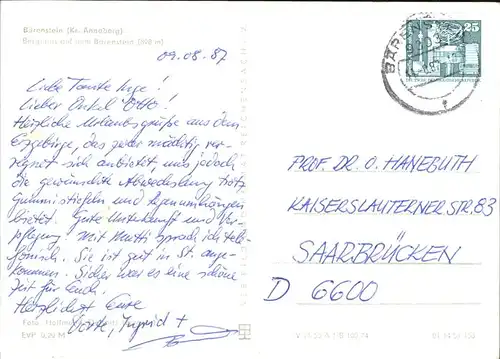 Bärenstein (Kr. Annaberg)
Berghaus auf dem Bärenstein (898 m)
09.08.87
Liebe Tante Inge!
Lieber Onkel Otto!
Herzliche Urlaubsgrüße aus dem
Erzgebirge, das zwar mächtig ver-
regnet sich anbietet, uns jedoch
die gewünschte Abwechslung trotz
Gummistiefeln und Regenumhängen
bietet. Gute Unterkunft und Ver-
pflegung. Mit Mutti sprach ich tele-
fonisch. Sie ist gut in St. ange-
kommen. Sicher war es eine schöne
Zeit für Euch.
Herzlichst Eure
Ingrid +
Foto:
EVP 0,20 M
BÄRENS
25
PROF. DR. O. HANEBUTH
KAISERSLAUTERNER STR. 83
SAARBRÜCKEN
D 6600